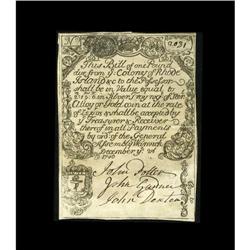 2031
This Bill of one Pound
due from ye Colony of Rhode
Island &c to the Possessor
shall be in Value equal to
Silver
Alloy or Gold Coin at the rate
shall be accepted by
ye Treasurer & Receiver
thereof in all Payments
by order of the General
Assembly Warwick
December ye
1740
John Potter
John Gardner
John Dexter